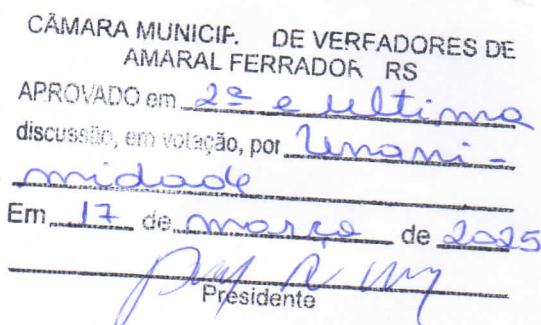 CÂMARA MUNICIP. DE VERFADORES DE
AMARAL FERRADOR RS
APROVADO em 2ª e ultima
discussão, em votação, por Unani-
midade
Em 17 de março de 2025
Presidente